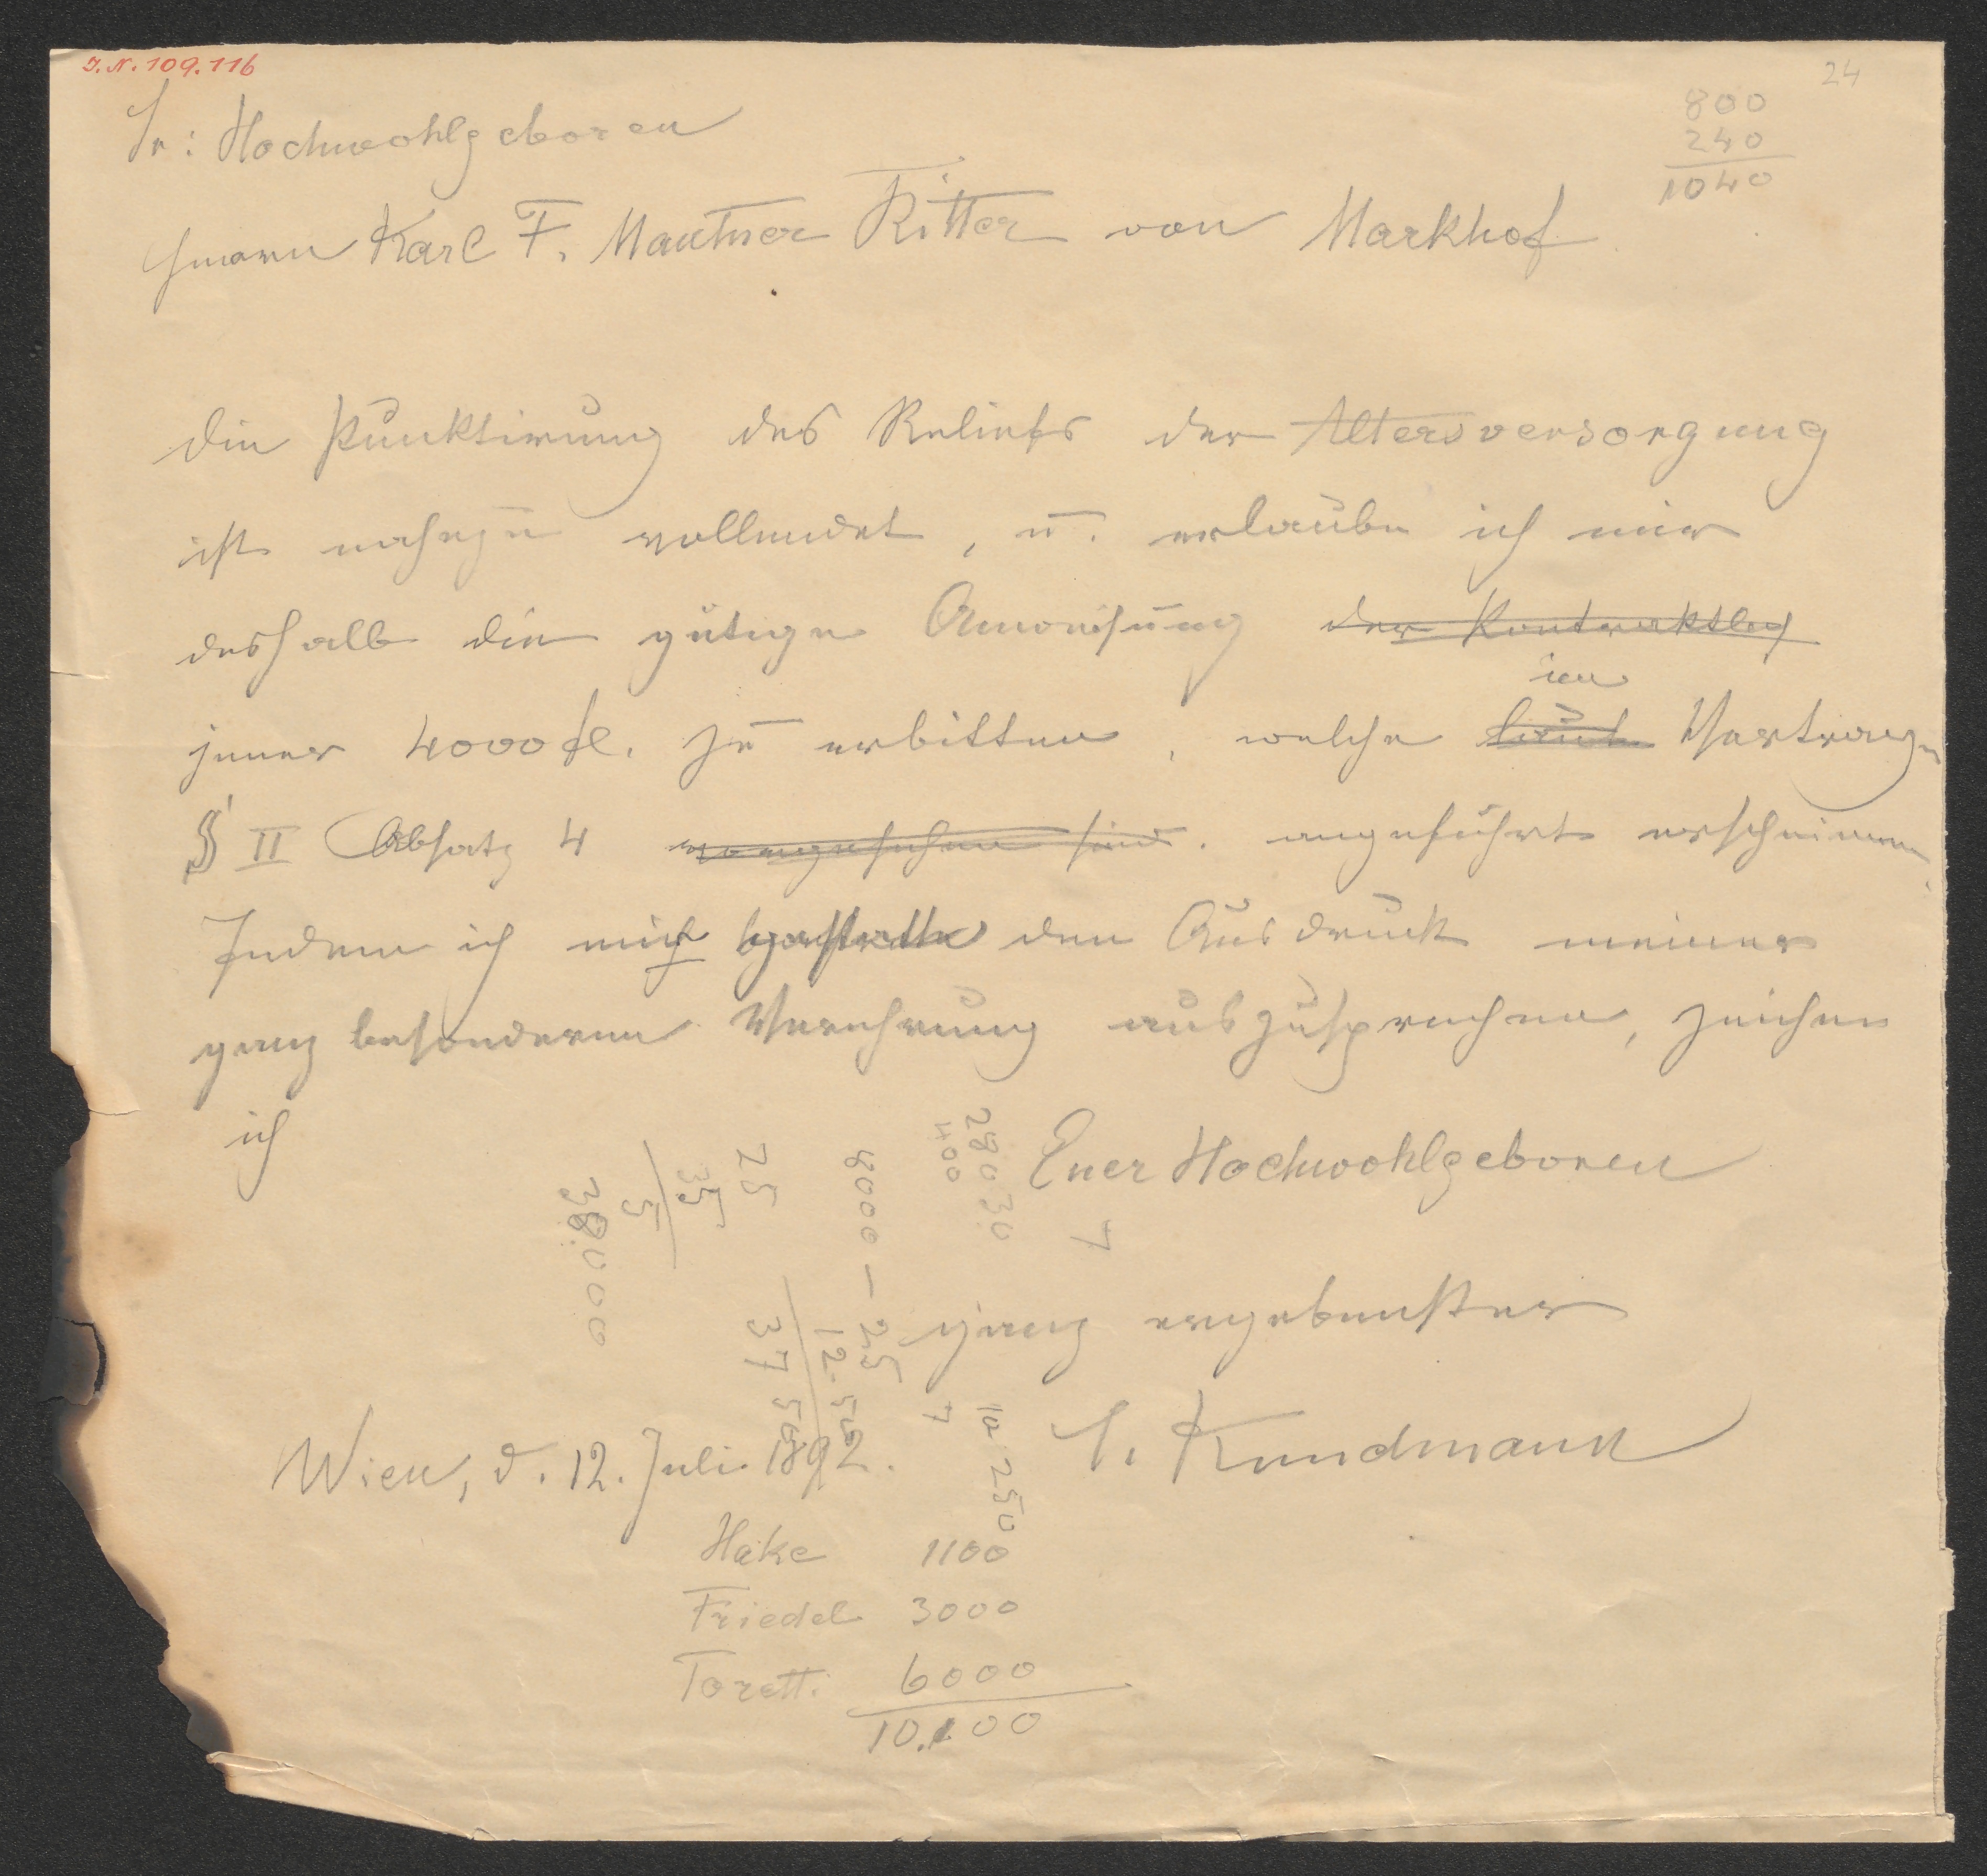 J.N. 109.116
24
800
240
1040
Sr: Hochwohlgeboren
Herrn Karl F. Mautner Ritter von Markhof
Die Punktirung des Reliefs der Altersversorgung
ist nahezu vollendet, u. erlaube ich mir
deshalb die gütige Anweisung der Kontraktlich
im
jener 4000 fl. zu erbitten, welche laut Vertrage
§ II Absatz 4 vorgesehen sind. angeführt erscheinen
Indem ich mich den Ausdruck meiner
ganz besonderen Verehrung auszusprechen, zeichne
ich
Euer Hochwohlgeboren
ganz ergebenster
C. Kundmann
Wien, d. 12. Juli 1892.
Hake 1100
Friedel 3000
Toretti 6000
10.100
280 30
400
7
8000 – 25
12 50
37 50
25
35
5
38.000
7
250